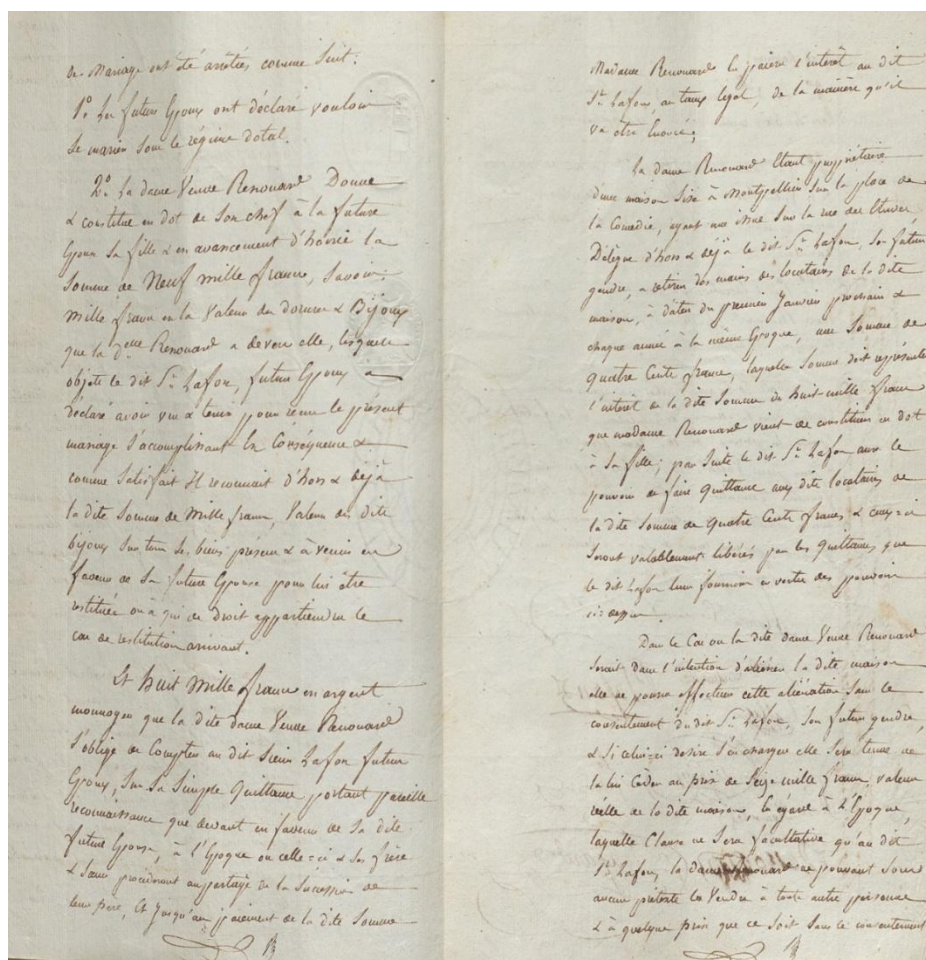 de Mariage ont été arrêtées comme suit:
1º Les futurs Epoux ont déclaré vouloir
se marier sous le régime dotal.
2º La dame Veuve Renouard Donne
& constitue en dot de son chef à la future
Epouse sa fille & en avancement d'hoirie la
somme de Neuf mille francs, savoir:
Mille francs en la Valeur des dorures & Bijoux
que la Delle Renouard a devers elle, lesquels
objets le dit Sr Lafon, futur Epoux a
déclaré avoir vus & tenir pour reçus le présent
mariage s'accomplissant En Conséquence &
comme satisfait Il reconnait d'hors & déjà
la dite Somme de Mille francs, Valeur des dits
bijoux sur tous ses biens présens & à venir en
faveur de sa future Epouse pour lui être
restituée ou à qui de Droit appartiendra le
cas de restitution arrivant.
Et huit Mille francs en argent
monnoyer que la dite dame Veuve Renouard
s'oblige de Compter au dit Sieur Lafon futur
Epoux, sur sa simple Quittance portant pareille
reconnaissance que devant en faveur de sa dite
future Epouse, à l'Epoque où celle-ci & ses frère
& sœur procèderont au partage de la Succession de
leur père, Et jusqu'au paiement de la dite Somme
Madame Renouard En paiera l'intérêt au dit
Sr Lafon, au taux légal, de la manière qu'il
va être Enoncé;
La dame Renouard Etant propriétaire
d'une maison Sise à Montpellier sur la place de
la Comédie, ayant une issue sur la rue des Etuves,
Délègue d'hors & déjà le dit Sr Lafon, son futur
gendre, à retirer des mains des locataires de la dite
maison, à dater du premier Janvier prochain &
chaque année à la même Epoque, une Somme de
Quatre Cents francs, laquelle Somme doit représenter
l'intérêt de la dite Somme de huit mille francs
que madame Renouard vient de constituer en dot
à sa fille; par suite le dit Sr Lafon aura le
pouvoir de faire Quittance aux dits locataires de
la dite somme de Quatre Cents francs & ceux-ci
seront valablement libérés par les Quittances que
le dit Lafon leur fournira en vertu des pouvoirs
ci-dessus.
Dans le Cas où la dite dame Veuve Renouard
serait dans l'intention d'aliéner la dite maison
elle ne pourra effectuer cette aliénation sans le
consentement du dit Sr Lafon, son futur gendre,
& Si celui-ci désire s'en charger elle sera tenue de
la lui Céder au prix de Seize mille francs, valeur
réelle de la dite maison, Eu égard à l'Epoque,
laquelle Clause ne Sera facultative qu'au dit
Sr Lafon, la dame Renouard ne pouvant sous
aucun prétexte la Vendre à toute autre personne
& à quelque prix que ce soit sans le consentement